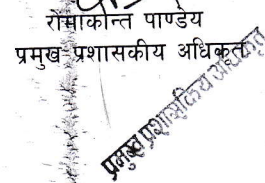 रोमाकान्त पाण्डेय
प्रमुख प्रशासकीय अधिकृत
प्रमुख प्रशासकिय अधिकृत